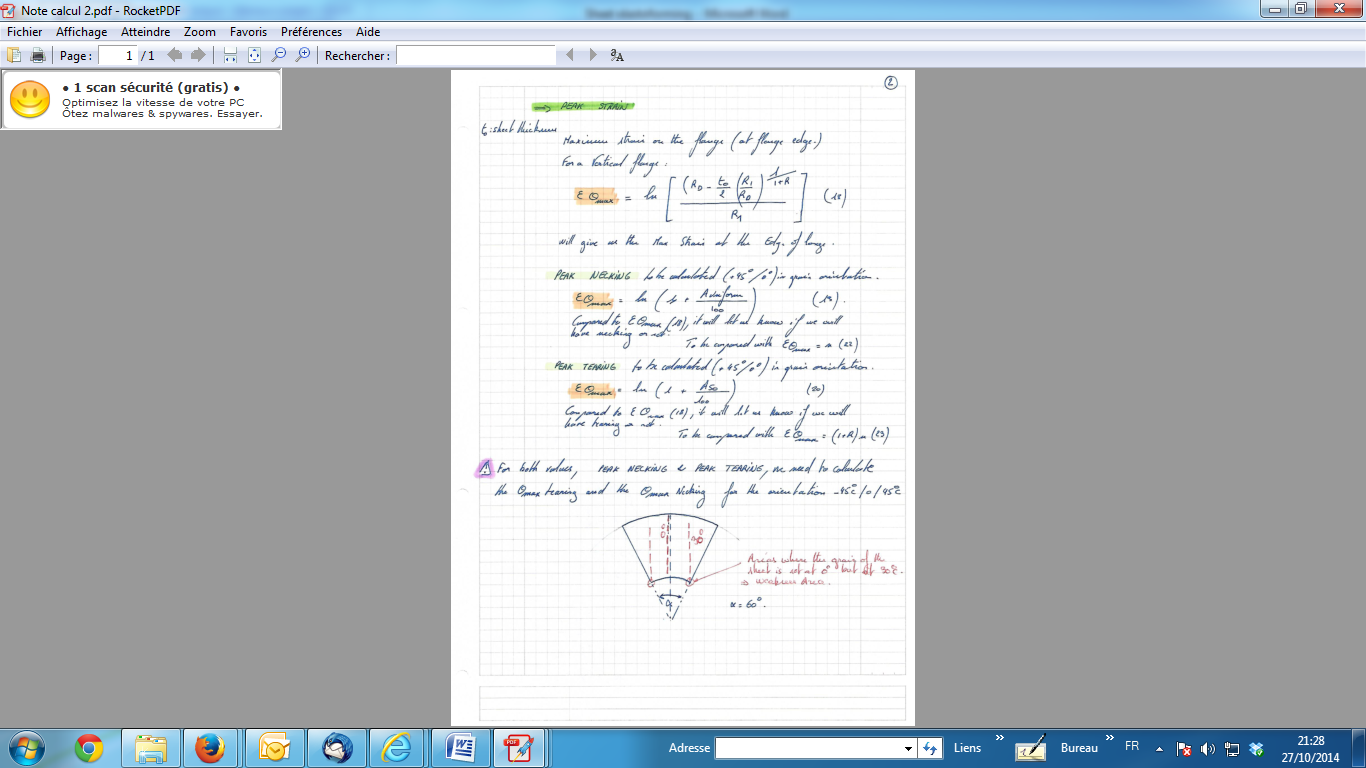 Note calcul 2.pdf - RocketPDF
Fichier Affichage Atteindre Zoom Favoris Préférences Aide
Page : 1 / 1 Rechercher :
• 1 scan sécurité (gratis) •
Optimisez la vitesse de votre PC
Ôtez malwares & spywares. Essayer.
2
→ PEAK STRAIN
t0: sheet thickness
Maximum strain on the flange (at flange edge.)
For a Vertical flange:
εθmax = ln [ (RD - t0/2 (R1/RD)^(1/(1+R))) / R1 ] (18)
will give us the Max Strain at the Edge of
PEAK NECKING to be calculated (+45°/0°) in grain orientation.
εθmax = ln (1 + A uniform/100) (19).
Compared to εθmax (18), it will let us know if we will
have necking or not.
To be compared with εθmax = n (22)
PEAK TEARING to be calculated (+45°/0°) in grain orientation.
εθmax = ln (1 + A50/100) (20)
Compared to εθmax (18), it will let us know if we will
have tearing or not.
To be compared with εθmax = (1+R)n (23)
For both values, PEAK NECKING & PEAK TEARING, we need to calculate
the θmax tearing and the θmax Necking for the orientation -45°/0/45°
0° 90°
Areas where the grain of the
sheet is not at 0° but at 90°.
α
α = 60°.
Adresse Liens » Bureau » FR
21:28
27/10/2014